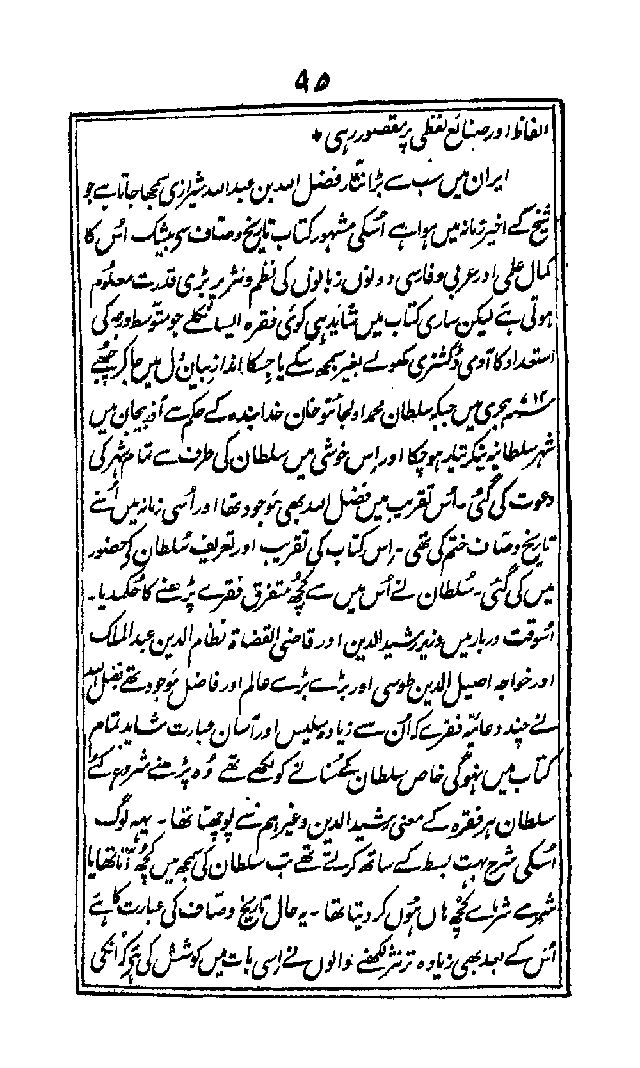 ۹۵
الفاظ اور صنائع لفظی پر مقصور رہی ٭
ایران میں سب سے بڑا نثار فضل اللہ بن عبد اللہ شیرازی سمجھا جاتا ہے جو
شیخ کے اخیر زمانہ میں ہوا ہے اُسکی مشہور کتاب تاریخ وصاف سے بیشک اُس کا
کمال علمی اور عربی و فارسی دونوں زبانوں کی نظم و نثر پر بڑی قدرت معلوم
ہوتی ہے لیکن ساری کتاب میں شاید ہی کوئی فقرہ ایسا نکلے جو متوسط درجہ کی
استعداد کا آدمی ڈکشنری کھولے بغیر سمجھ سکے یا جسکا انداز بیان دل میں جا کر چبھے
۷۱۲ ہجری میں جبکہ سلطان محمد اولجائتو خان خدابندہ کے حکم سے آذربیجان میں
شہر سلطانیہ بنکر تیار ہو چکا اور اِس خوشی میں سلطان کی طرف سے تمام شہر کی
دعوت کی گئی ۔ اُس تقریب میں فضل اللہ بھی موجود تھا اور اُسی زمانہ میں اُسنے
تاریخ وصاف ختم کی تھی ۔ اِس کتاب کی تقریب اور تعریف سُلطان کے حضور
میں کی گئی ۔ سُلطان نے اُس میں سے کچھ متفرق فقرے پڑھنے کا حُکم دیا ۔
اُسوقت دربار میں وزیر رشید الدین اور قاضی القضاۃ نظام الدین عبد الملک
اور خواجہ اصیل الدین طوسی اور بڑے بڑے عالم اور فاضل موجود تھے فضل اللہ
نے چند دعائیہ فقرے کہ اُن سے زیادہ سلیس اور آسان عبارت شاید تمام
کتاب میں نہوگی خاص سلطان کے سُنانے کو لکھے تھے وُہ پڑھنے شروع کئے
سلطان ہر فقرہ کے معنی رشید الدین وغیرہم سے پوچھتا تھا ۔ یہہ لوگ
اُسکی شرح بہت بسط کے ساتھ کرتے تھے تب سلطان کی سمجھ میں کچھ آتا تھا یا
شرما شرمے کچھ ہاں ہوں کر دیتا تھا ۔ یہ حال تاریخ وصاف کی عبارت کا ہے
اُس کے بعد بھی زیادہ تر نثر لکھنے والوں نے اِسی بات میں کوشش کی ہے کہ اُنکی